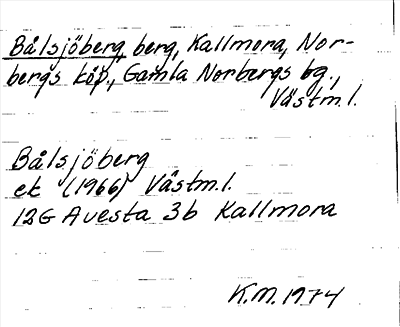 Bålsjöberg, berg, Kallmora, Nor-
bergs köp., Gamla Norbergs bg.,
Västm.l.
Bålsjöberg
ek (1966) Västm.l.
12G Avesta 3b Kallmora
K.M. 1974